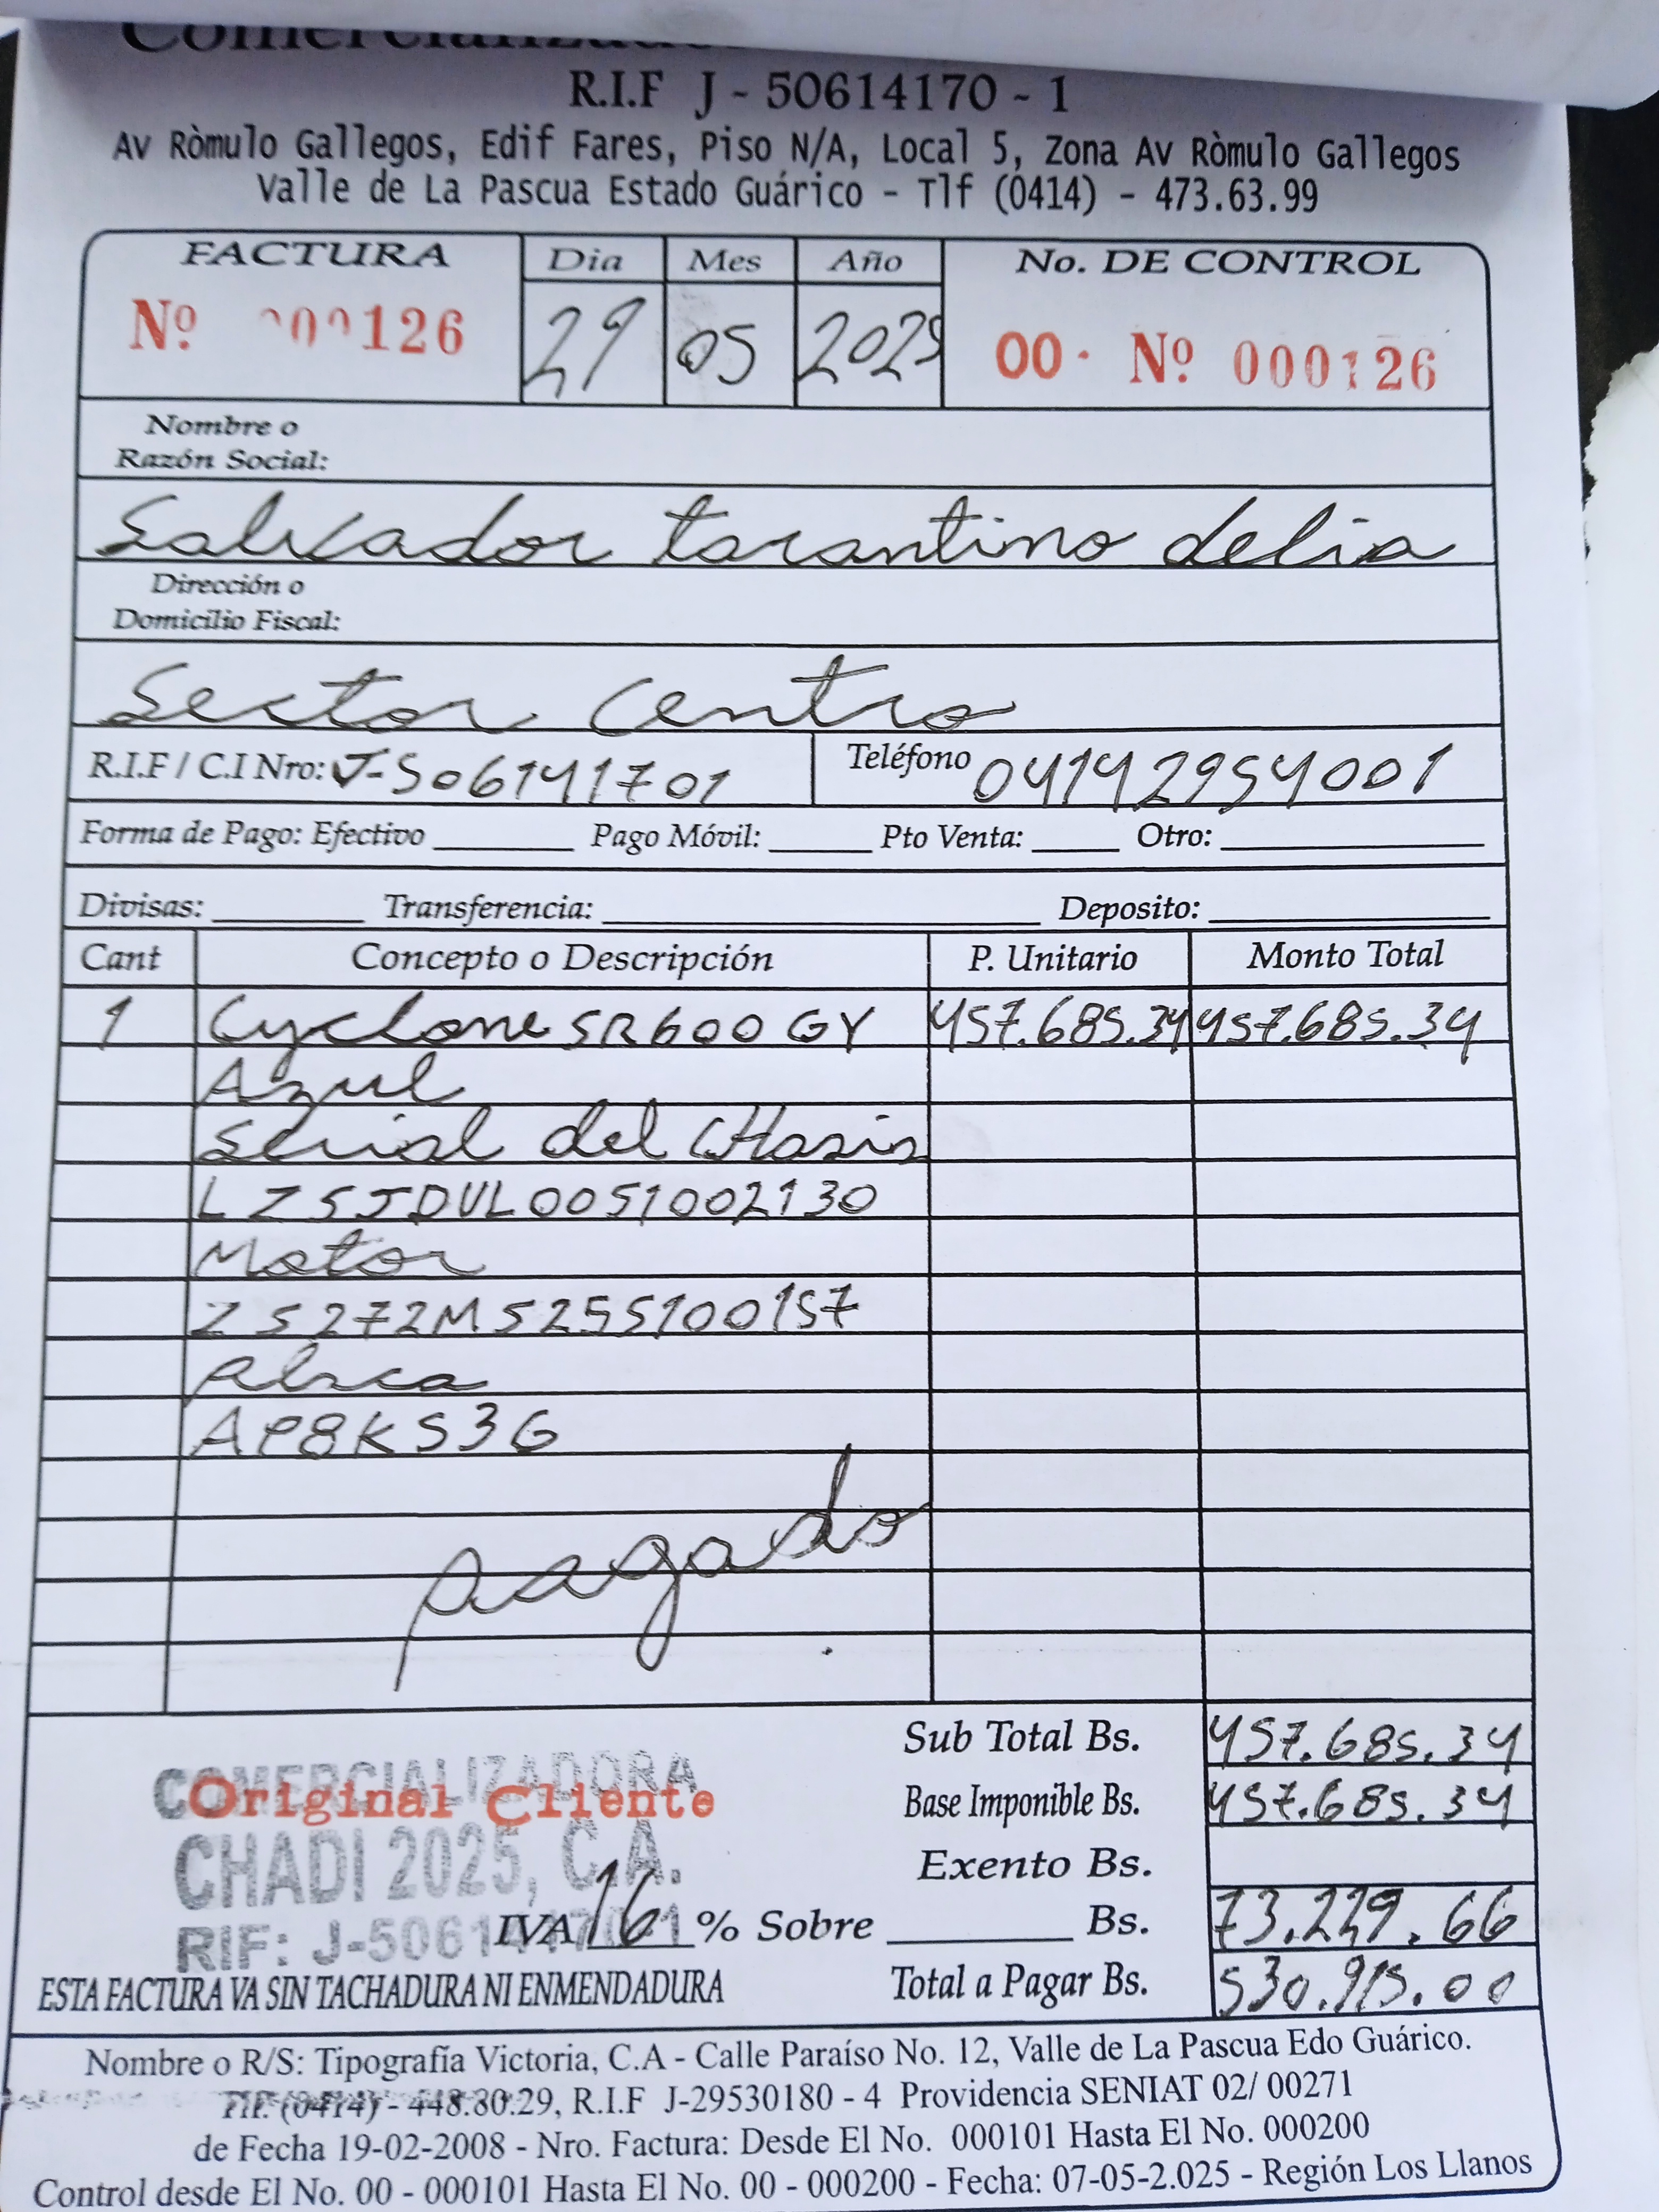 R.I.F J - 50614170 - 1
Av Ròmulo Gallegos, Edif Fares, Piso N/A, Local 5, Zona Av Ròmulo Gallegos
Valle de La Pascua Estado Guárico - Tlf (0414) - 473.63.99
FACTURA Dia Mes Año No. DE CONTROL
Nº 000126 29 05 2025 00 · Nº 000126
Nombre o
Razón Social:
Salvador tarantino delia
Dirección o
Domicilio Fiscal:
Sector Centro
R.I.F / C.I Nro: J-506141701 Teléfono 04142954001
Forma de Pago: Efectivo Pago Móvil: Pto Venta: Otro:
Divisas: Transferencia: Deposito:
Cant Concepto o Descripción P. Unitario Monto Total
1 Cyclone SR600GY 457.685.34 457.685.34
Azul
Serial del CHasis
LZSJDUL0051002130
Motor
ZS272M5255100157
Placa
AP8K53G
pagado
Sub Total Bs. 457.685.34
COMERCIALIZADORA
Original Cliente
Base Imponible Bs. 457.685.34
CHADI 2025, C.A.
Exento Bs.
RIF: J-506141701
IVA 16 % Sobre Bs. 73.229.66
ESTA FACTURA VA SIN TACHADURA NI ENMENDADURA Total a Pagar Bs. 530.915.00
Nombre o R/S: Tipografía Victoria, C.A - Calle Paraíso No. 12, Valle de La Pascua Edo Guárico.
Tlf. (0414) - 448.80.29, R.I.F J-29530180 - 4 Providencia SENIAT 02/ 00271
de Fecha 19-02-2008 - Nro. Factura: Desde El No. 000101 Hasta El No. 000200
Control desde El No. 00 - 000101 Hasta El No. 00 - 000200 - Fecha: 07-05-2.025 - Región Los Llanos